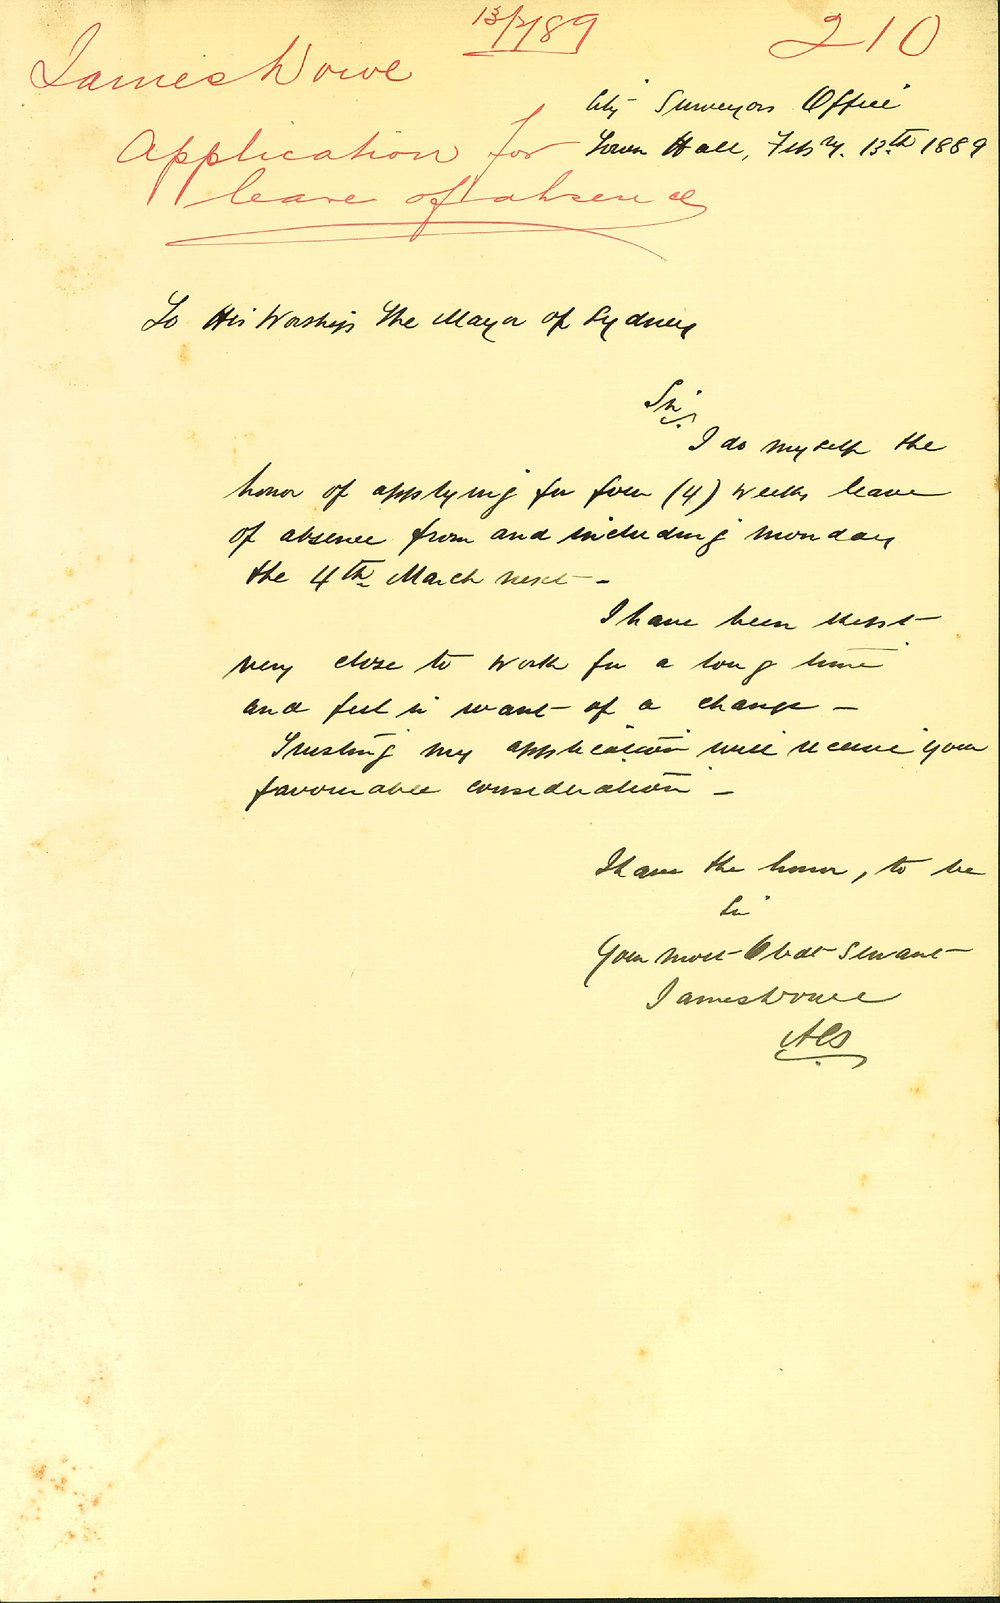 13/2/89
210
James Vowe
Application for
leave of absence
City Surveyors Office
Town Hall, Feby. 13th 1889
To His Worship The Mayor of Sydney
Sir,
I do myself the
honor of applying for four (4) weeks leave
of absence from and including Monday
the 4th March next -
I have been kept
very close to work for a long time
and feel in want of a change -
Trusting my application will receive your
favourable consideration -
I have the honor, to be
Sir
Your most Obdt Servant
James